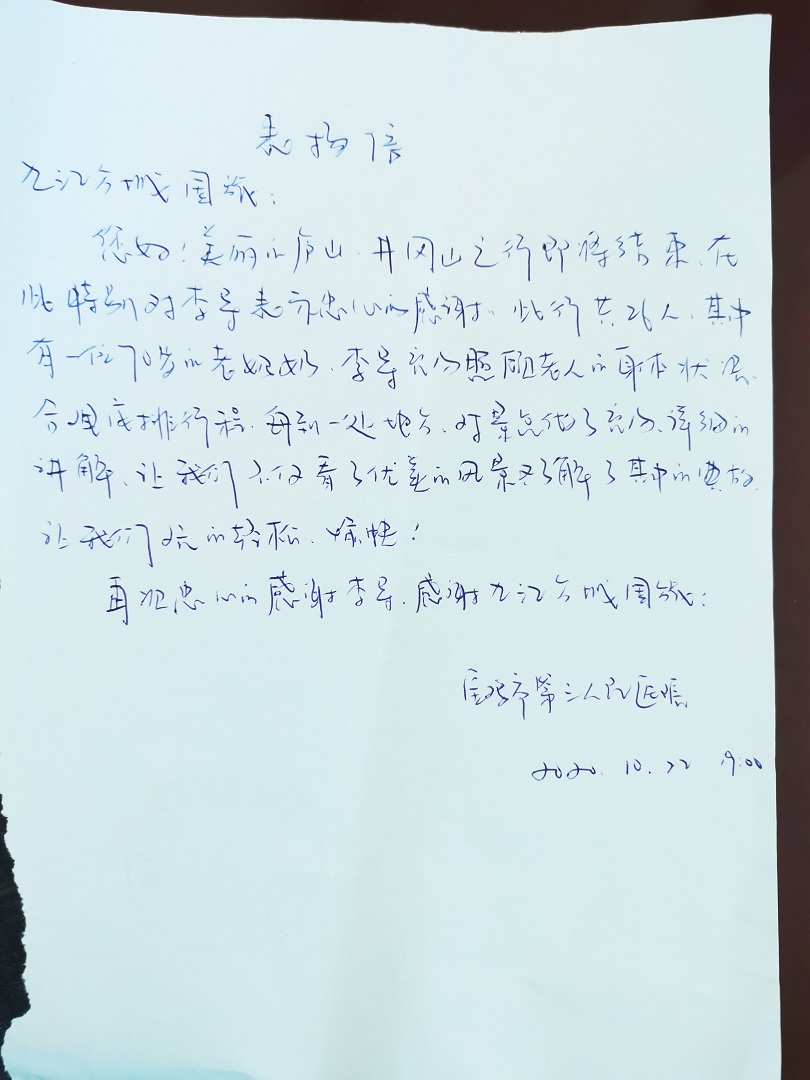 表扬信
九江方城国旅：
您好！美丽的庐山、井冈山之行即将结束、在
此特别对李导表示忠心的感谢。此行共26人、其中
有一位70岁的老奶奶、李导充分照顾老人的身体状况、
合理安排行程、每到一处地方、对景点做了充分、详细的
讲解、让我们不仅看了优美的风景又了解了其中的典故、
让我们玩的轻松、愉快！
再次忠心的感谢李导、感谢九江方城国旅：
市第三人民医院
2020.10.22 19:00